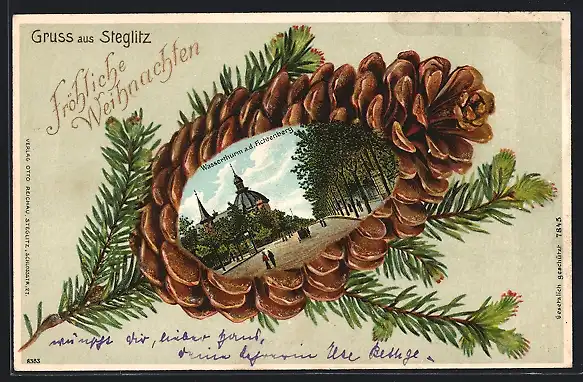 Gruss aus Steglitz
Fröhliche
Weihnachten
Wasserthurm a.d. Fichtenberg
VERLAG OTTO REICHAU, STEGLITZ, SCHLOSSSTR. 27.
Gesetzlich geschützt 7845
wünscht dir, lieber Hans,
deine Lehrerin Else Bethge.
8383